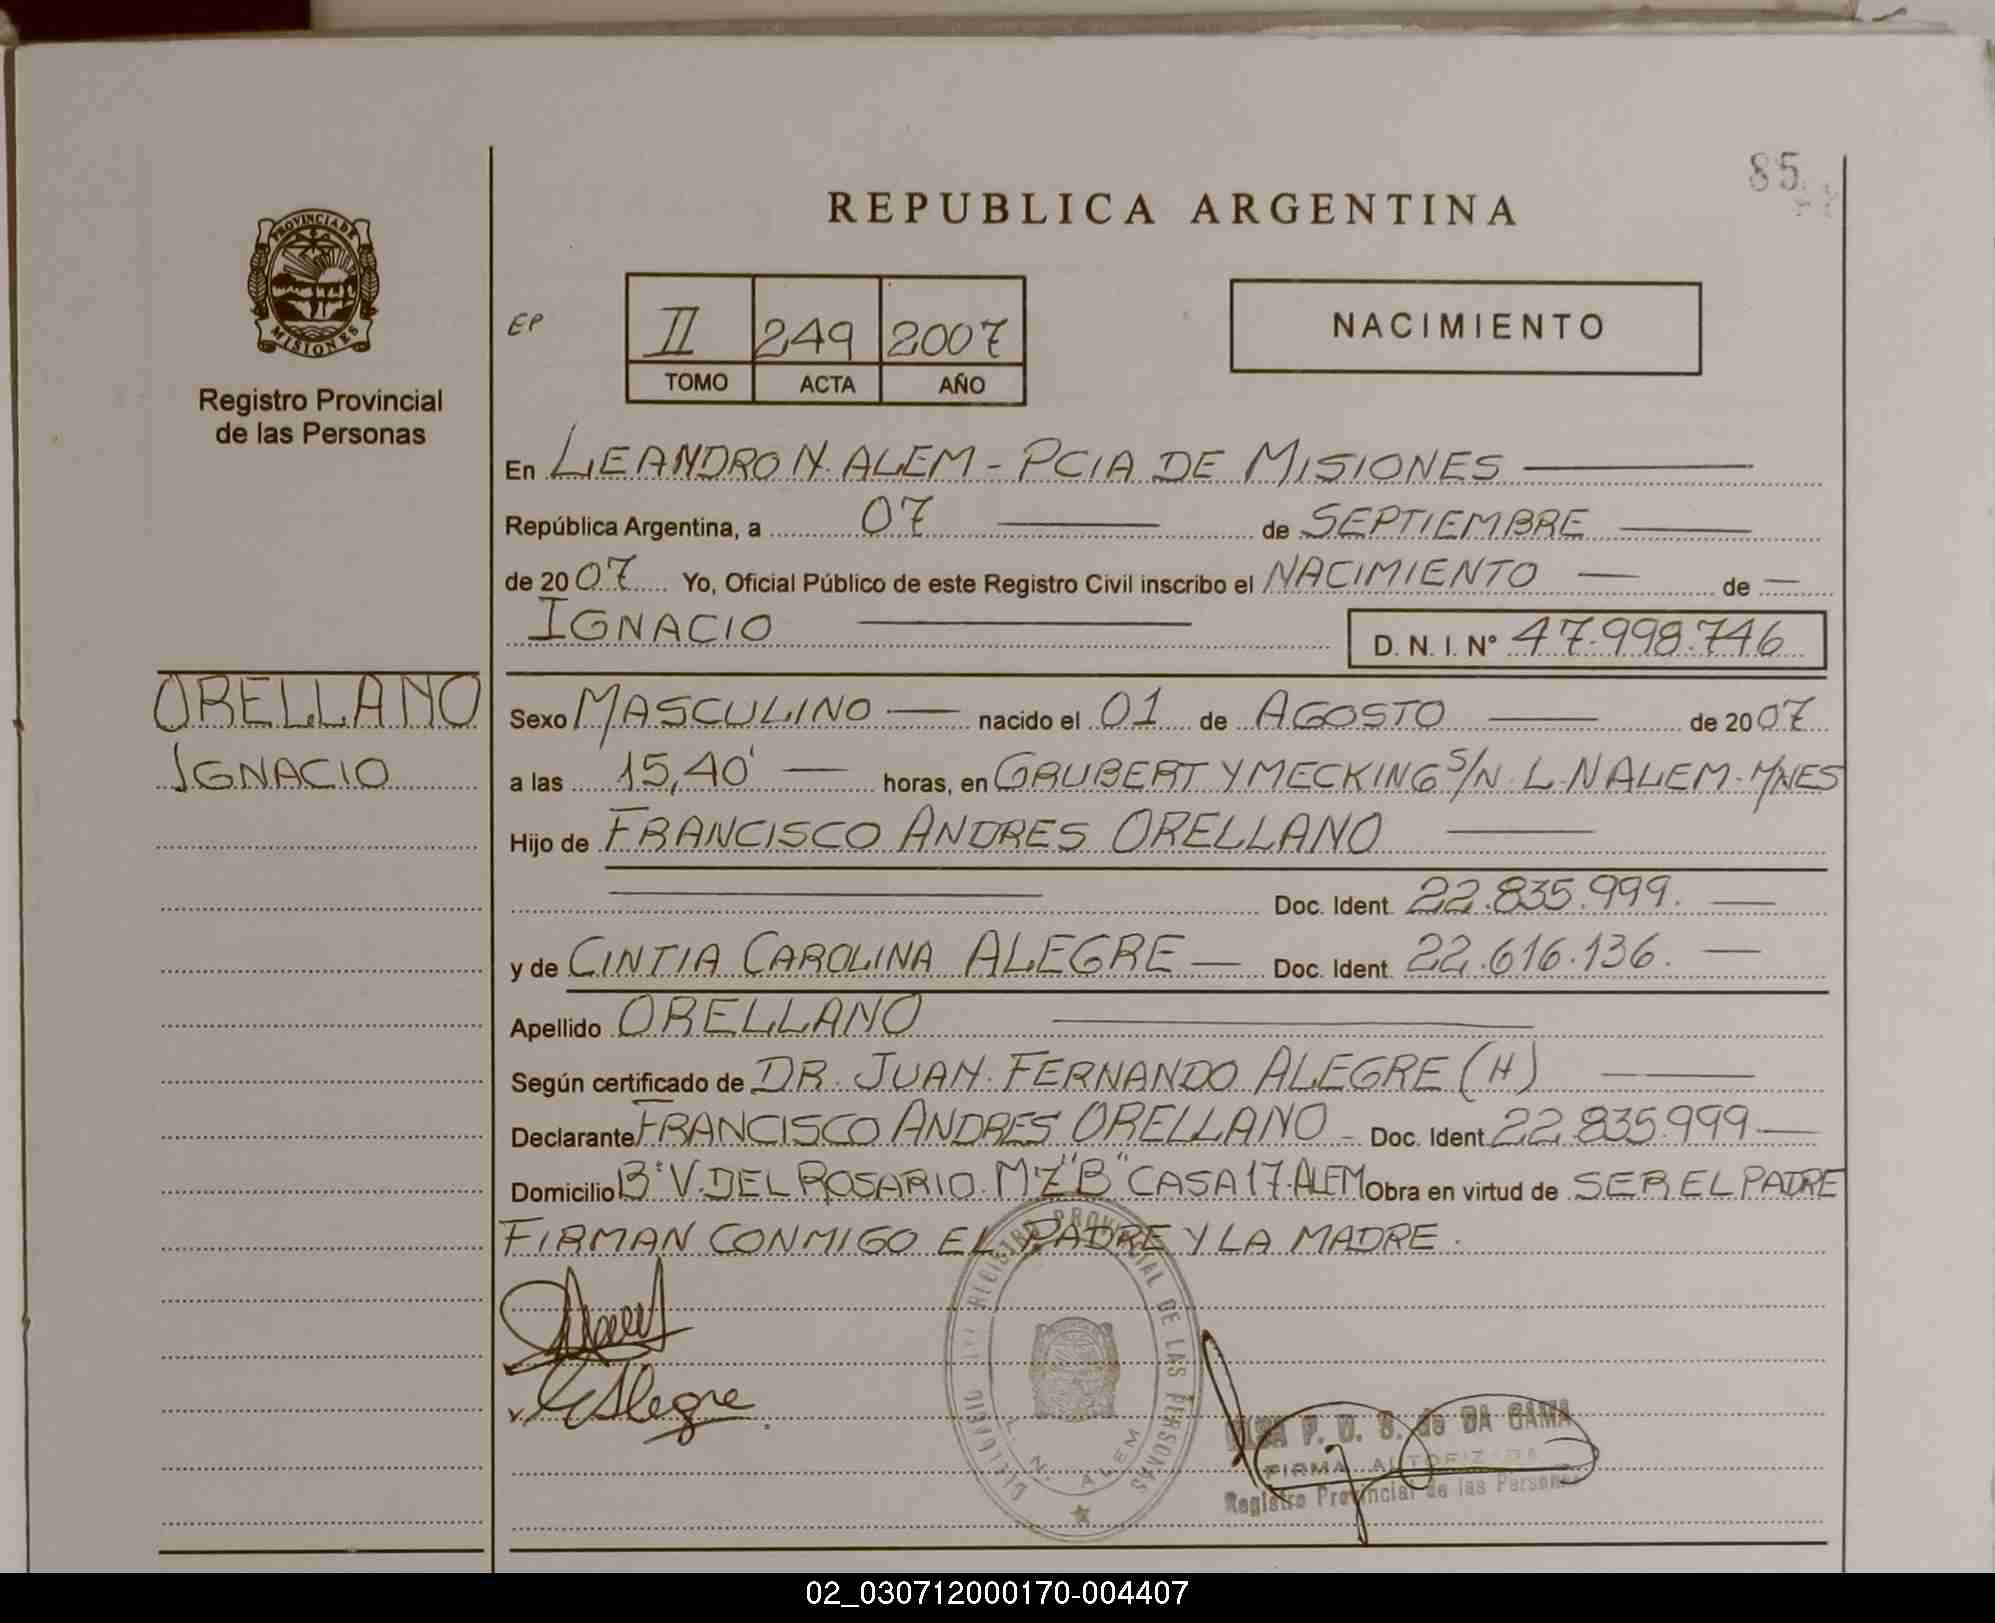 85
REPUBLICA ARGENTINA
PROVINCIA DE
MISIONES
Registro Provincial
de las Personas
EP
II 249 2007
TOMO ACTA AÑO
NACIMIENTO
En LEANDRO N. ALEM - PCIA DE MISIONES
República Argentina, a 07 de SEPTIEMBRE
de 2007 Yo, Oficial Público de este Registro Civil inscribo el NACIMIENTO de
IGNACIO D. N. I. N° 47.998.746
ORELLANO
IGNACIO
Sexo MASCULINO nacido el 01 de AGOSTO de 2007
a las 15,40' horas, en GRUBERT Y MECKING S/N. L.N ALEM. M/NES
Hijo de FRANCISCO ANDRES ORELLANO
Doc. Ident. 22.835.999.
y de CINTIA CAROLINA ALEGRE Doc. Ident. 22.616.136.
Apellido ORELLANO
Según certificado de DR. JUAN. FERNANDO ALEGRE (H)
Declarante FRANCISCO ANDRES ORELLANO - Doc. Ident. 22.835.999
Domicilio B° V. DEL ROSARIO. MZ "B" CASA 17. ALEM Obra en virtud de SER EL PADRE
FIRMAN CONMIGO EL PADRE Y LA MADRE.
REGISTRO PROVINCIAL DE LAS PERSONAS
L. N. ALEM
Alegre
P. D. S. de DA GAMA
FIRMA AUTORIZADA
Registro Provincial de las Personas
02_030712000170-004407